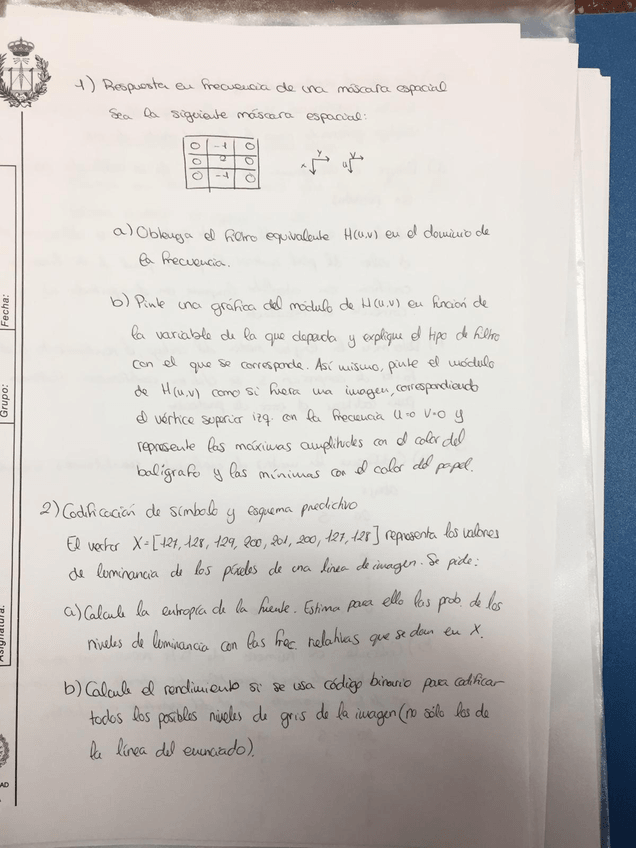 1) Respuesta en frecuencia de una máscara espacial
Sea la siguiente máscara espacial:
0 -1 0
0 2 0
0 -1 0
y y
x u
a) Obtenga el filtro equivalente H(u,v) en el dominio de
la frecuencia.
b) Pinte una gráfica del módulo de H(u,v) en función de
la variable de la que dependa y explique el tipo de filtro
con el que se corresponde. Así mismo, pinte el módulo
de H(u,v) como si fuera una imagen, correspondiendo
el vértice superior izq. con la frecuencia u=0 v=0 y
represente las máximas amplitudes con el color del
bolígrafo y las mínimas con el color del papel.
2) Codificación de símbolo y esquema predictivo
El vector X=[127, 128, 129, 200, 201, 200, 127, 128] representa los valores
de luminancia de los píxeles de una línea de imagen. Se pide:
a) Calcule la entropía de la fuente. Estima para ello las prob. de los
niveles de luminancia con las frec. relativas que se dan en X.
b) Calcule el rendimiento si se usa código binario para codificar
todos los posibles niveles de gris de la imagen (no sólo los de
la línea del enunciado).
Fecha:
Grupo:
Asignatura:
AD